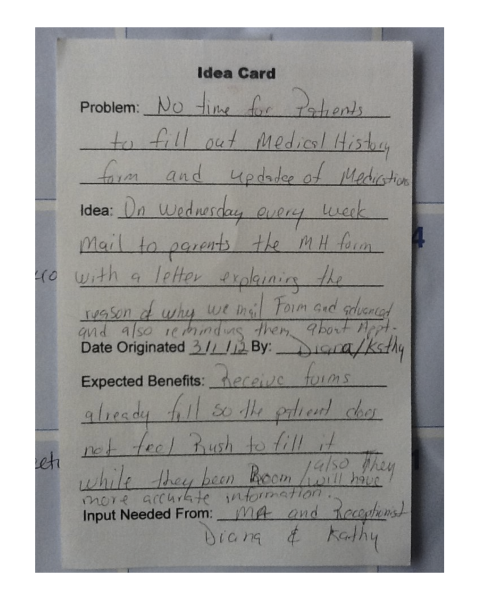 Idea Card
Problem: No time for Patients
to fill out Medical History
form and updates of Medications
Idea: On Wednesday every week
Mail to parents the MH form
with a letter explaining the
reason of why we mail Form and advanced
and also reminding them about Appt.
Date Originated 3/1/12 By: Diana/Kathy
Expected Benefits: Receive forms
already fill so the patient does
not feel Rush to fill it
while they been Room / also they
will have
more accurate information.
Input Needed From: MA and Receptionist
Diana & Kathy
4